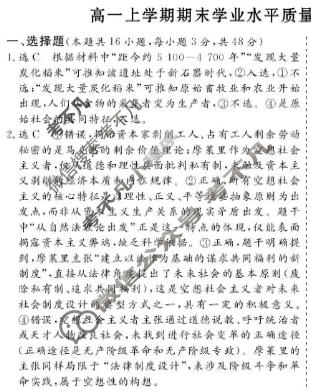 高一上学期期末学业水平质量
一、选择题(本题共16小题,每小题3分,共48分)
1.选C 根据材料中“距今约5 100—4 700年”“发现大量
炭化稻米”可推知该遗址处于新石器时代,②入选,①不
选;“发现大量炭化稻米”可推知原始畜牧业和农业开始
出现,人们 食物的采 者变为生产者,③不选。④是原
始社会的 同特征 入选。
2.选C 错误, 资本家剥削工人、占有工人剩余劳动
秘密的是马 的剩余价值理论;摩莱里作为空想社会
主义者,仅从道德和理性 面批判私有制,未触及资本主
义剥削 经济本质和 在规律。②正确,所有空想社会
主义的核心特征 理性、正义、平等 抽象原则为出
发点,而非从 生产关系的 实矛盾出发。题干
中“从自然法理论出发”正是这一特点的体现,仅能表面
揭露资本主义弊端,缺乏科学依据。③正确,题干明确提
到,摩莱里主张“建立以法 为基础的谋求共同福利的新
制度”,直接从法律角 提出了未来社会的基本原则(废
除私有制、追求共同 利),这是空想社会主义者对未来
社会制度设计的典型方式之一,具有一定的积极意义。
④错误, 社会主义者主张通过道德说教、呼吁统治者
或天才人物 良社会,未找到进行社会变革的正确途径
(正确途径是无产阶级革命和无产阶级专政)。摩莱里的
主张同样局限于“法律制度设计”,未涉及阶级斗争和革
命实践,属于空想性的构想。